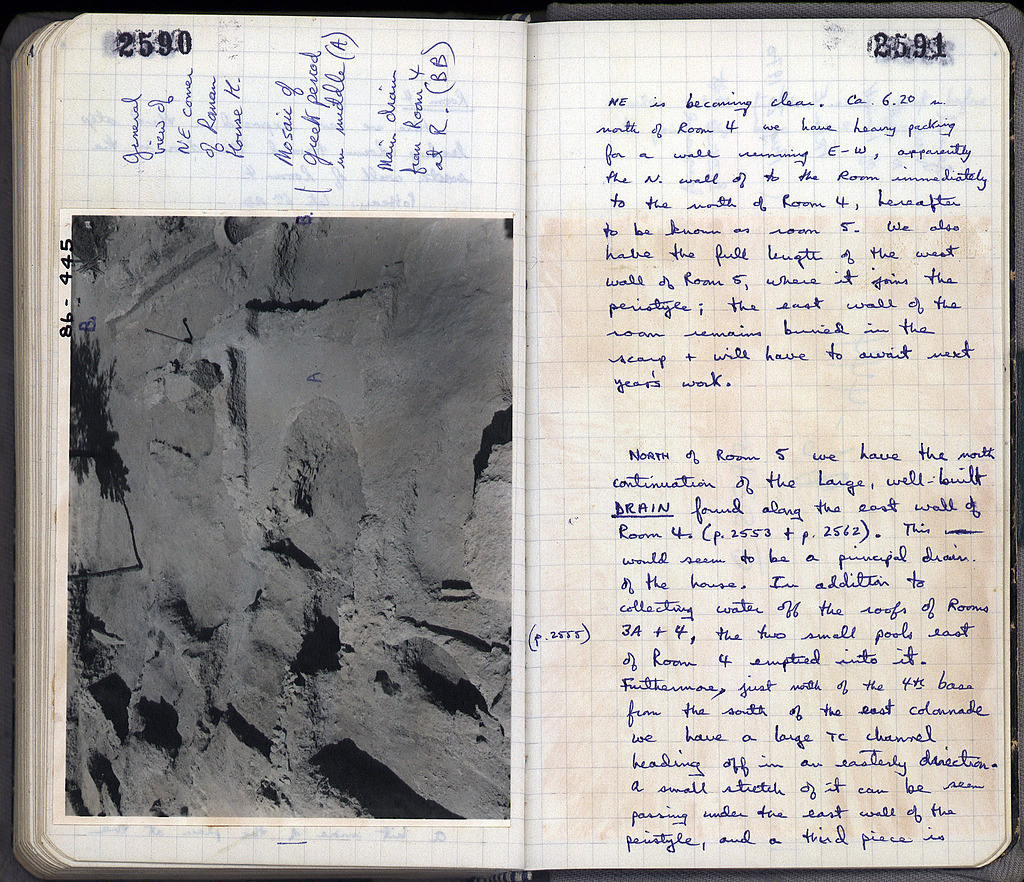 2590
General
view of
NE corner
of Roman
House K.
Mosaic of
Greek period
in middle (A)
Main drain
from Room 4
at R. (BB)
86-445
B.
B.
A
2591
NE is becoming clear. Ca. 6.20 m.
north of Room 4 we have heavy packing
for a wall running E-W, apparently
the N. wall of to the Room immediately
to the north of Room 4, hereafter
to be known as room 5. We also
have the full length of the west
wall of Room 5, where it joins the
peristyle; the east wall of the
room remains buried in the
scarp + will have to await next
year's work.
NORTH of Room 5 we have the north
continuation of the large, well-built
DRAIN found along the east wall of
Room 4. (p. 2553 + p. 2562). This
would seem to be a principal drain
of the house. In addition to
collecting water off the roofs of Rooms
(p. 2555) 3A + 4, the two small pools east
of Room 4 emptied into it.
Furthermore, just north of the 4th base
from the south of the east colonnade
we have a large TC channel
heading off in an easterly direction.
A small stretch of it can be seen
passing under the east wall of the
peristyle, and a third piece is